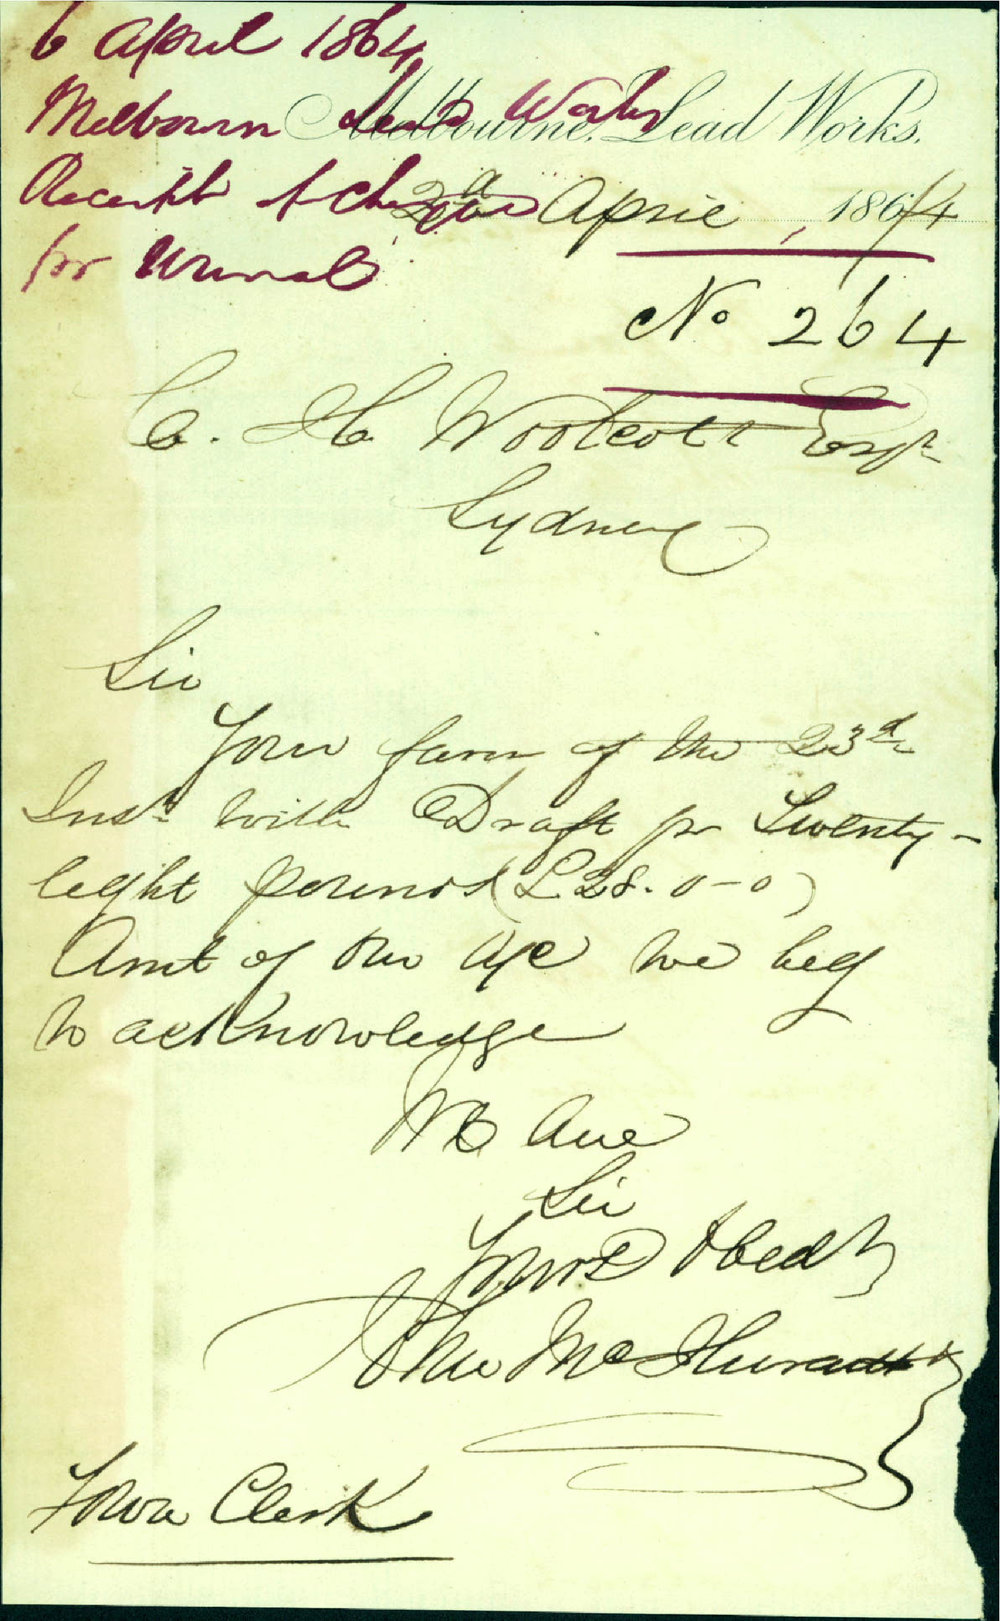 6 April 1864
Melbourn Lead Works
Receipt of cheque
for Urinal
Melbourne Lead Works.
April, 1864
No 264
C. H. Woolcott Esqr
Sydney
Sir
Your favor of the 23d
Inst with Draft for Twenty-
eight pounds (£28.0-0)
Amt of our A/c we beg
to acknowledge
We are
Sir
Yours Obedt
John Mc
Town Clerk